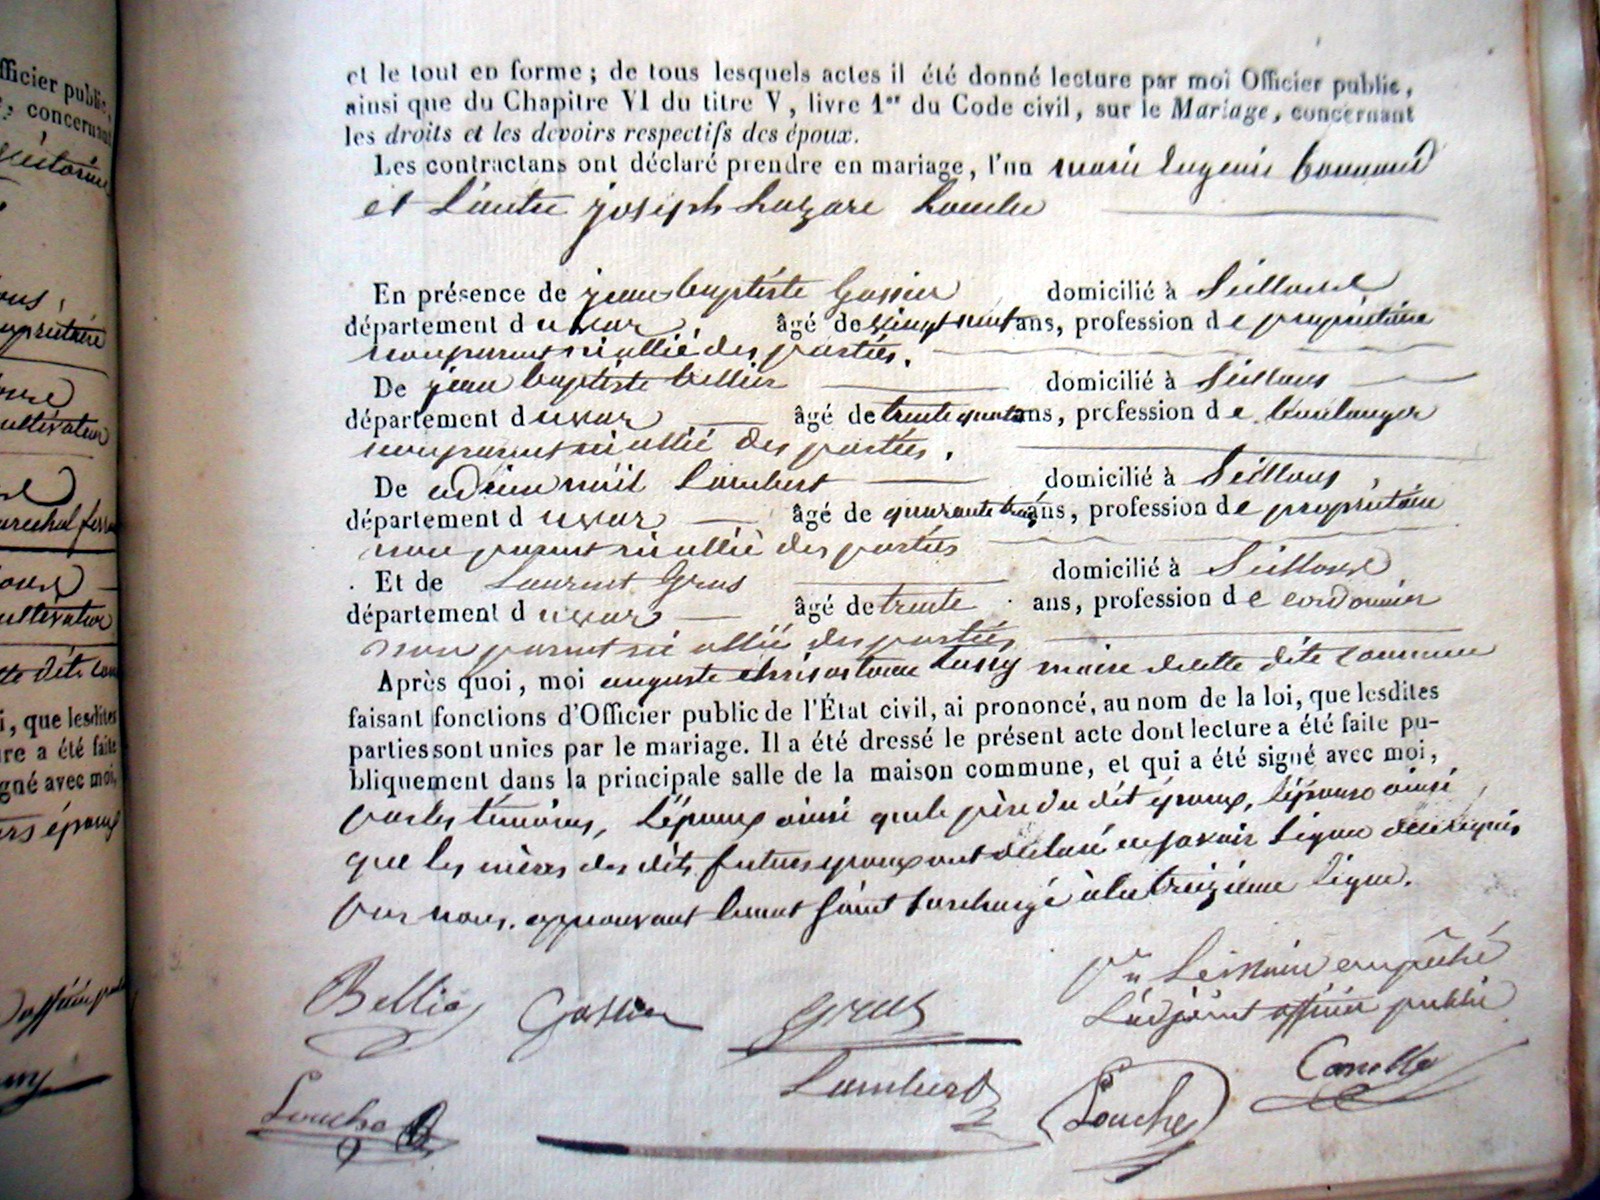 et le tout en forme ; de tous lesquels actes il été donné lecture par moi Officier public,
ainsi que du Chapitre VI du titre V, livre 1er du Code civil, sur le Mariage, concernant
les droits et les devoirs respectifs des époux.
Les contractans ont déclaré prendre en mariage, l'un marie Eugenie
et L'autre joseph Lazare Louche
En présence de jean baptiste Gassier domicilié à Seillans
département du var, âgé de vingt neuf ans, profession de propriétaire
non parent ni allié des parties.
De jean baptiste Bellier domicilié à Seillans
département du var âgé de trente quatre ans, profession de boulanger
non parent ni allié des parties.
De adrien noël Lambert domicilié à Seillans
département du var âgé de quarante trois ans, profession de propriétaire
non parent ni allié des parties
Et de Laurent Grus domicilié à Seillans
département du var âgé de trente ans, profession de cordonnier
non parent ni allié des parties
Après quoi, moi auguste maire de cette dite commune
faisant fonctions d'Officier public de l'État civil, ai prononcé, au nom de la loi, que lesdites
parties sont unies par le mariage. Il a été dressé le présent acte dont lecture a été faite pu-
bliquement dans la principale salle de la maison commune, et qui a été signé avec moi,
par les témoins, L'époux ainsi que le père du dit époux, l'épouse ainsi
que les mères des dits futurs epoux ont déclaré ne savoir signer de ce requis
par nous. approuvant surchargé à la treizième ligne.
Bellie Gassier Grus
pr Le Maire empêché
L'adjoint officier public
Louche Lambert Louche